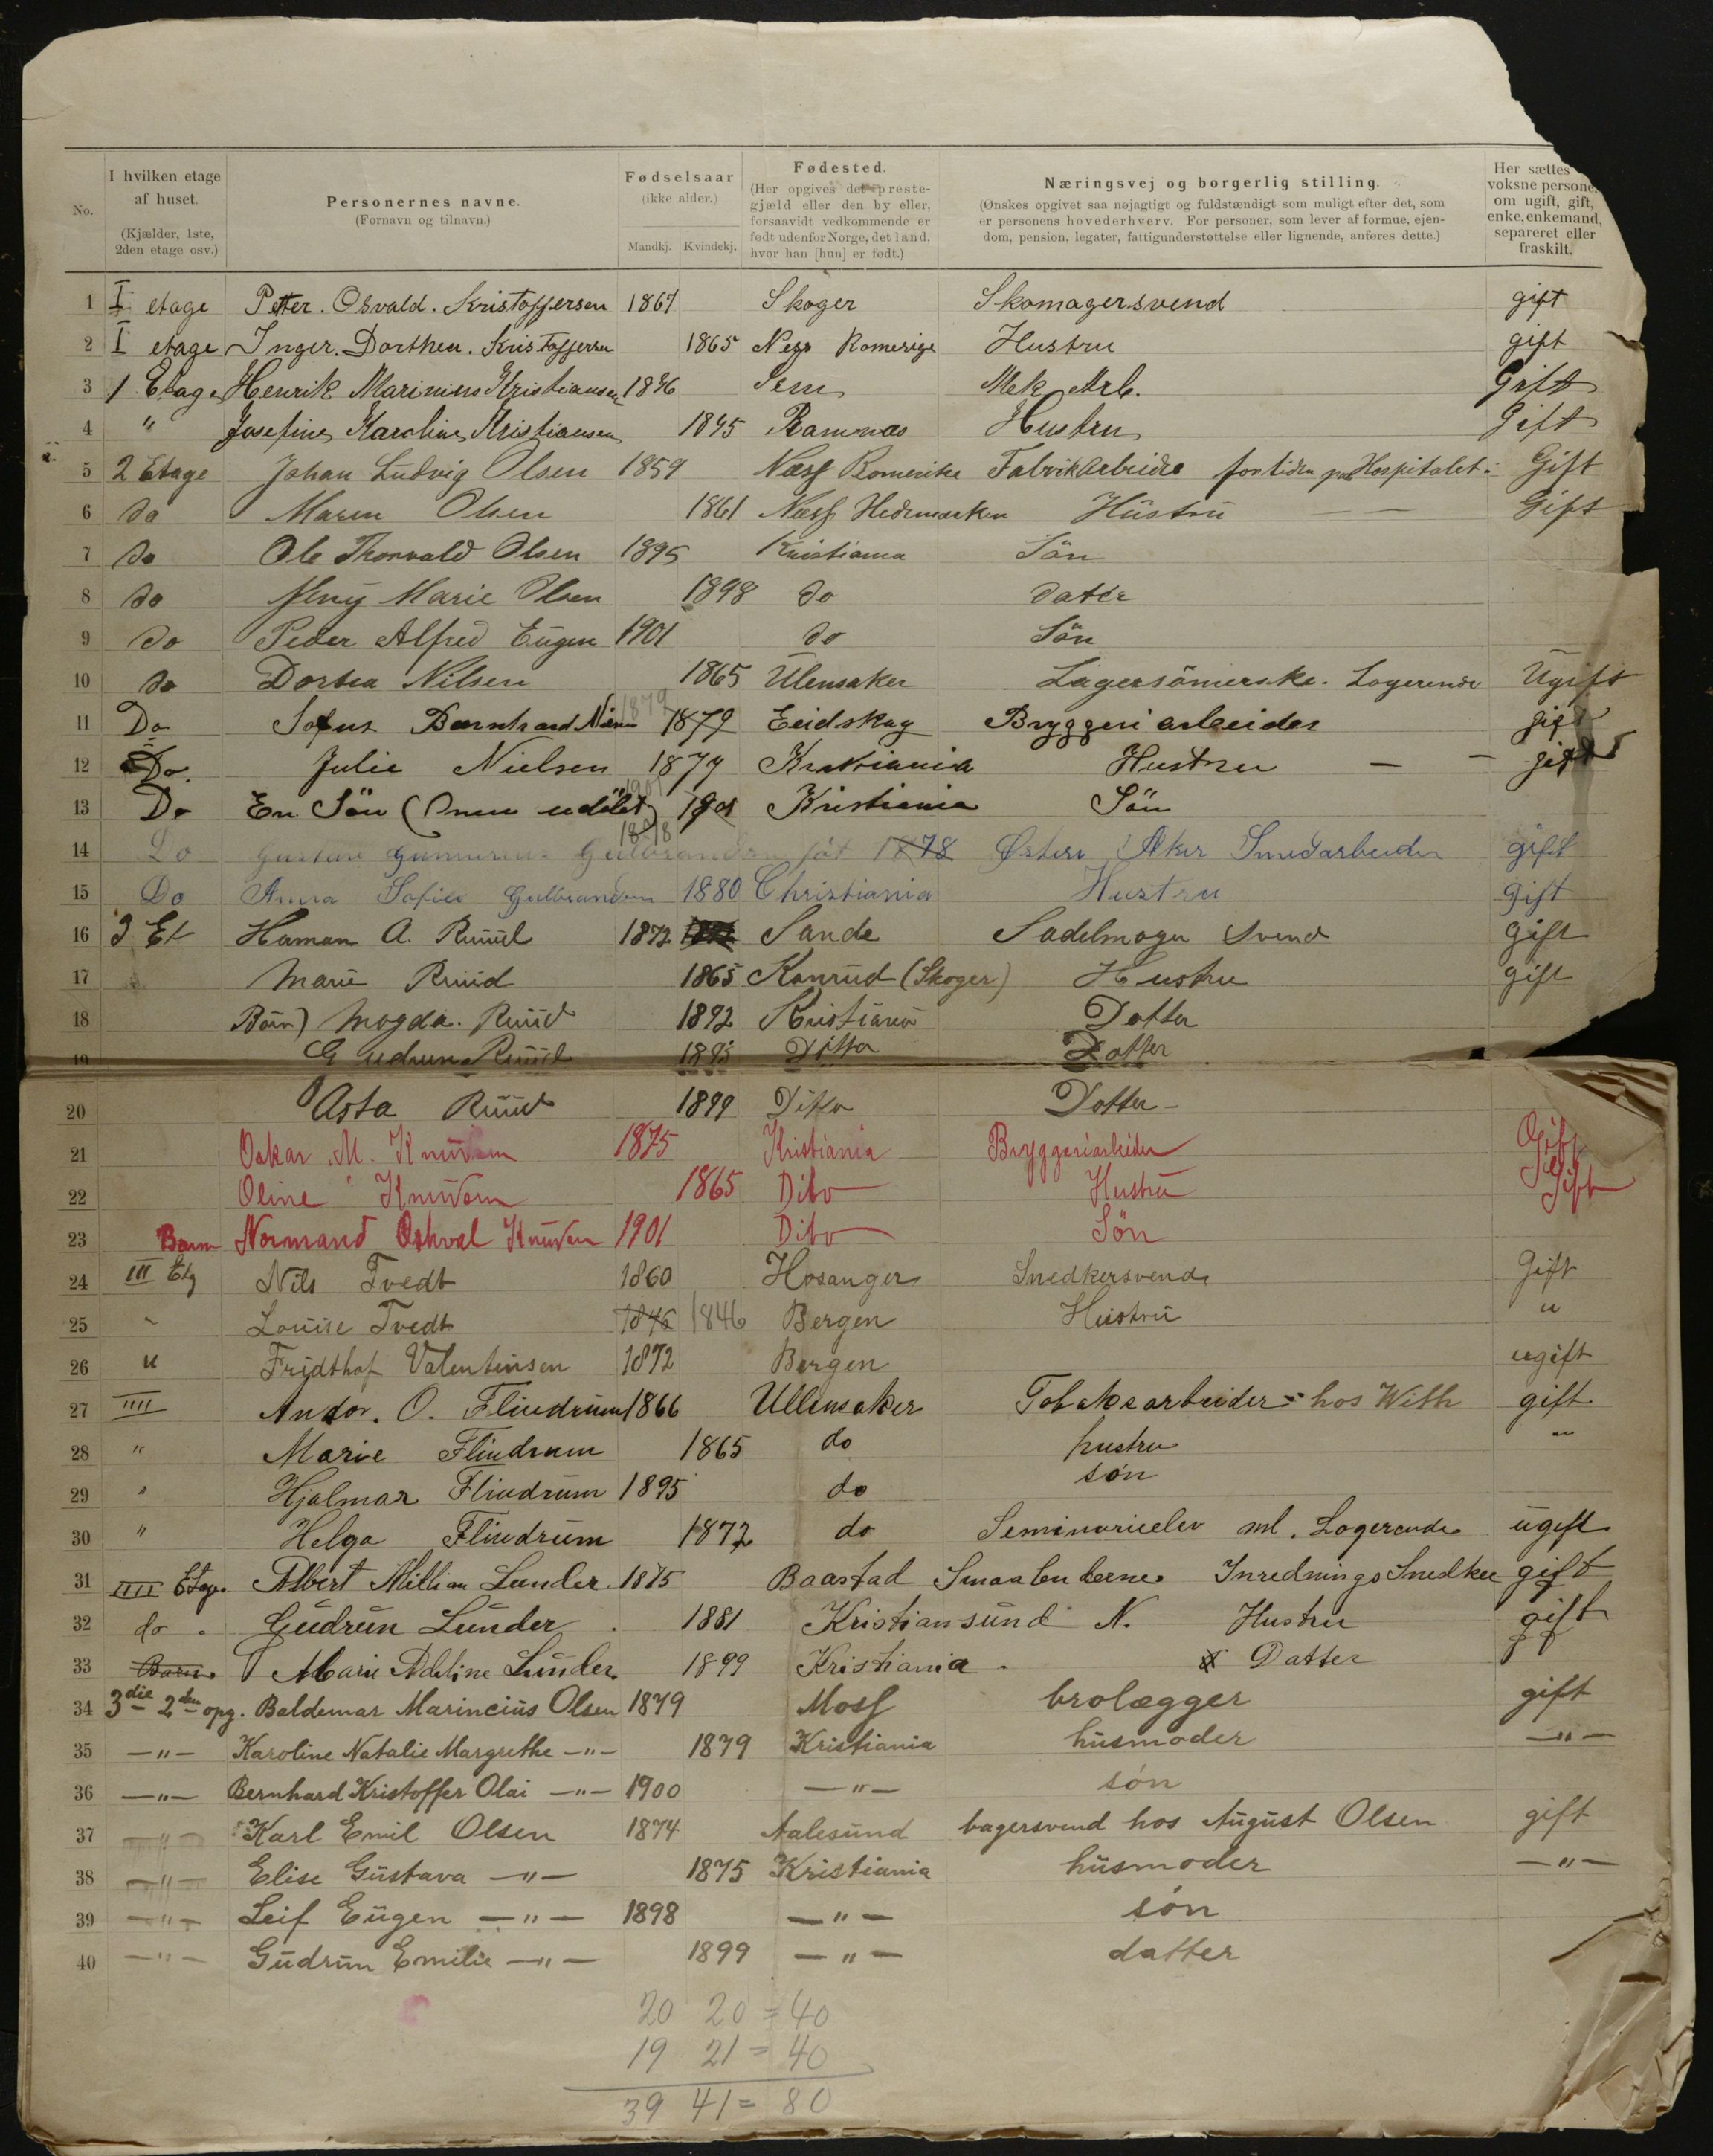 No.
I hvilken etage
af huset.
(Kjælder, 1ste,
2den etage osv.)
Personernes navne.
(Fornavn og tilnavn.)
Fødselsaar
(ikke alder.)
Mandkj. Kvindekj.
Fødested.
(Her opgives det preste-
gjæld eller den by eller,
forsaavidt vedkommende er
født udenfor Norge, det land,
hvor han [hun] er født.)
Næringsvej og borgerlig stilling.
(Ønskes opgivet saa nøjagtigt og fuldstændigt som muligt efter det, som
er personens hovederhverv. For personer, som lever af formue, ejen-
dom, pension, legater, fattigunderstøttelse eller lignende, anføres dette.)
Her sættes
voksne persone
om ugift, gift,
enke, enkemand,
separeret eller
fraskilt.
1 I etage Petter. Osvald. Kristoffersen 1867 Skoger Skomagersvend gift
2 I etage Inger. Dorthea. Kristoffersen 1865 Ness Romerige Hustru gift
3 1 Etage Henrik Marinius Kristiansen 1846 Sem Mek Arb. Gift
4 " Josefine Karoline Kristiansen 1845 Ramnæs Hustru Gift
5 2 Etage Johan Ludvig Olsen 1859 Næss Romerike Fabrikarbeider for tiden paa Hospitalet Gift
6 do Maren Olsen 1861 Næss Hedemarken Hustru — — Gift
7 do Ole Thorvald Olsen 1895 Kristiania Sön
8 do Jeny Marie Olsen 1898 do dater
9 do Peder Alfred Eugen 1901 do Sön
10 do Dortea Nilsen 1865 Ulensaker Lagersömerske. Logerende Ugift
1879
11 Do Sofus Bernhard Nilsen 1879 Eidskog Bryggeri arbeider gift
12 Do. Julie Nielsen 1874 Kristiania Hustru — — gift
1901
13 Do En Sön (Onen udöbt) 1901 Kristiania Sön
1878
14 Do Gustav Gunnerius Gulbrandsen föt 1878 Østere Aker Smedarbeider gift
15 Do Anna Sofie Gulbrandsen 1880 Christiania Hustru gift
16 3 Et Haman A. Ruud 1872 Sande Sadelmager Svend gift
17 Marie Ruud 1865 Konrud (Skoger) Hustru gift
18 Börn) Magda. Ruud 1892 Kristiania Dotter
19 Gudrun Ruud 1895 Ditto Dotter
20 Asta Ruud 1899 Ditto Dotter
21 Oskar. M. Knudsen 1875 Kristiania Bryggeriarbeider Gift
22 Oline Knudsen 1865 Dito Hustru Gift
23 Barn Normand Oshval Knudsen 1901 Dito Sön
24 III Etg Nils Tvedt 1860 Hosanger Snedkersvend Gift
25 " Louise Tvedt 1846 1846 Bergen Hustru "
26 " Fridthof Valentinsen 1872 Bergen ugift
27 IIII Andor. O. Flindrum 1866 Ullensaker Tobaksarbeider hos With gift
28 " Marie Flindrum 1865 do hustru "
29 " Hjalmar Flindrum 1895 do søn
30 " Helga Flindrum 1872 do Seminarieelev ml. Logerende ugift
31 IIII Etage Albert Millian Lunder. 1875 Baastad Smaalenene Inrednings Snedker gift
32 do. Gudrun Lunder 1881 Kristiansund N. Hustru gift
33 Barn Marie Adeline Lunder. 1899 Kristiania. Datter
34 3die 2den opg. Baldemar Marincius Olsen 1879 Moss brolægger gift
35 —"— Karoline Natalie Margrethe —"— 1879 Kristiania husmoder —"—
36 —"— Bernhard Kristoffer Olai —"— 1900 —"— søn
37 —"— Karl Emil Olsen 1874 Aalesund bagersvend hos August Olsen gift
38 —"— Elise Gustava —"— 1875 Kristiania husmoder —"—
39 —"— Leif Eugen —"— 1898 —"— søn
40 —"— Gudrun Emilie —"— 1899 —"— datter
20 20 = 40
19 21 = 40
39 41 = 80